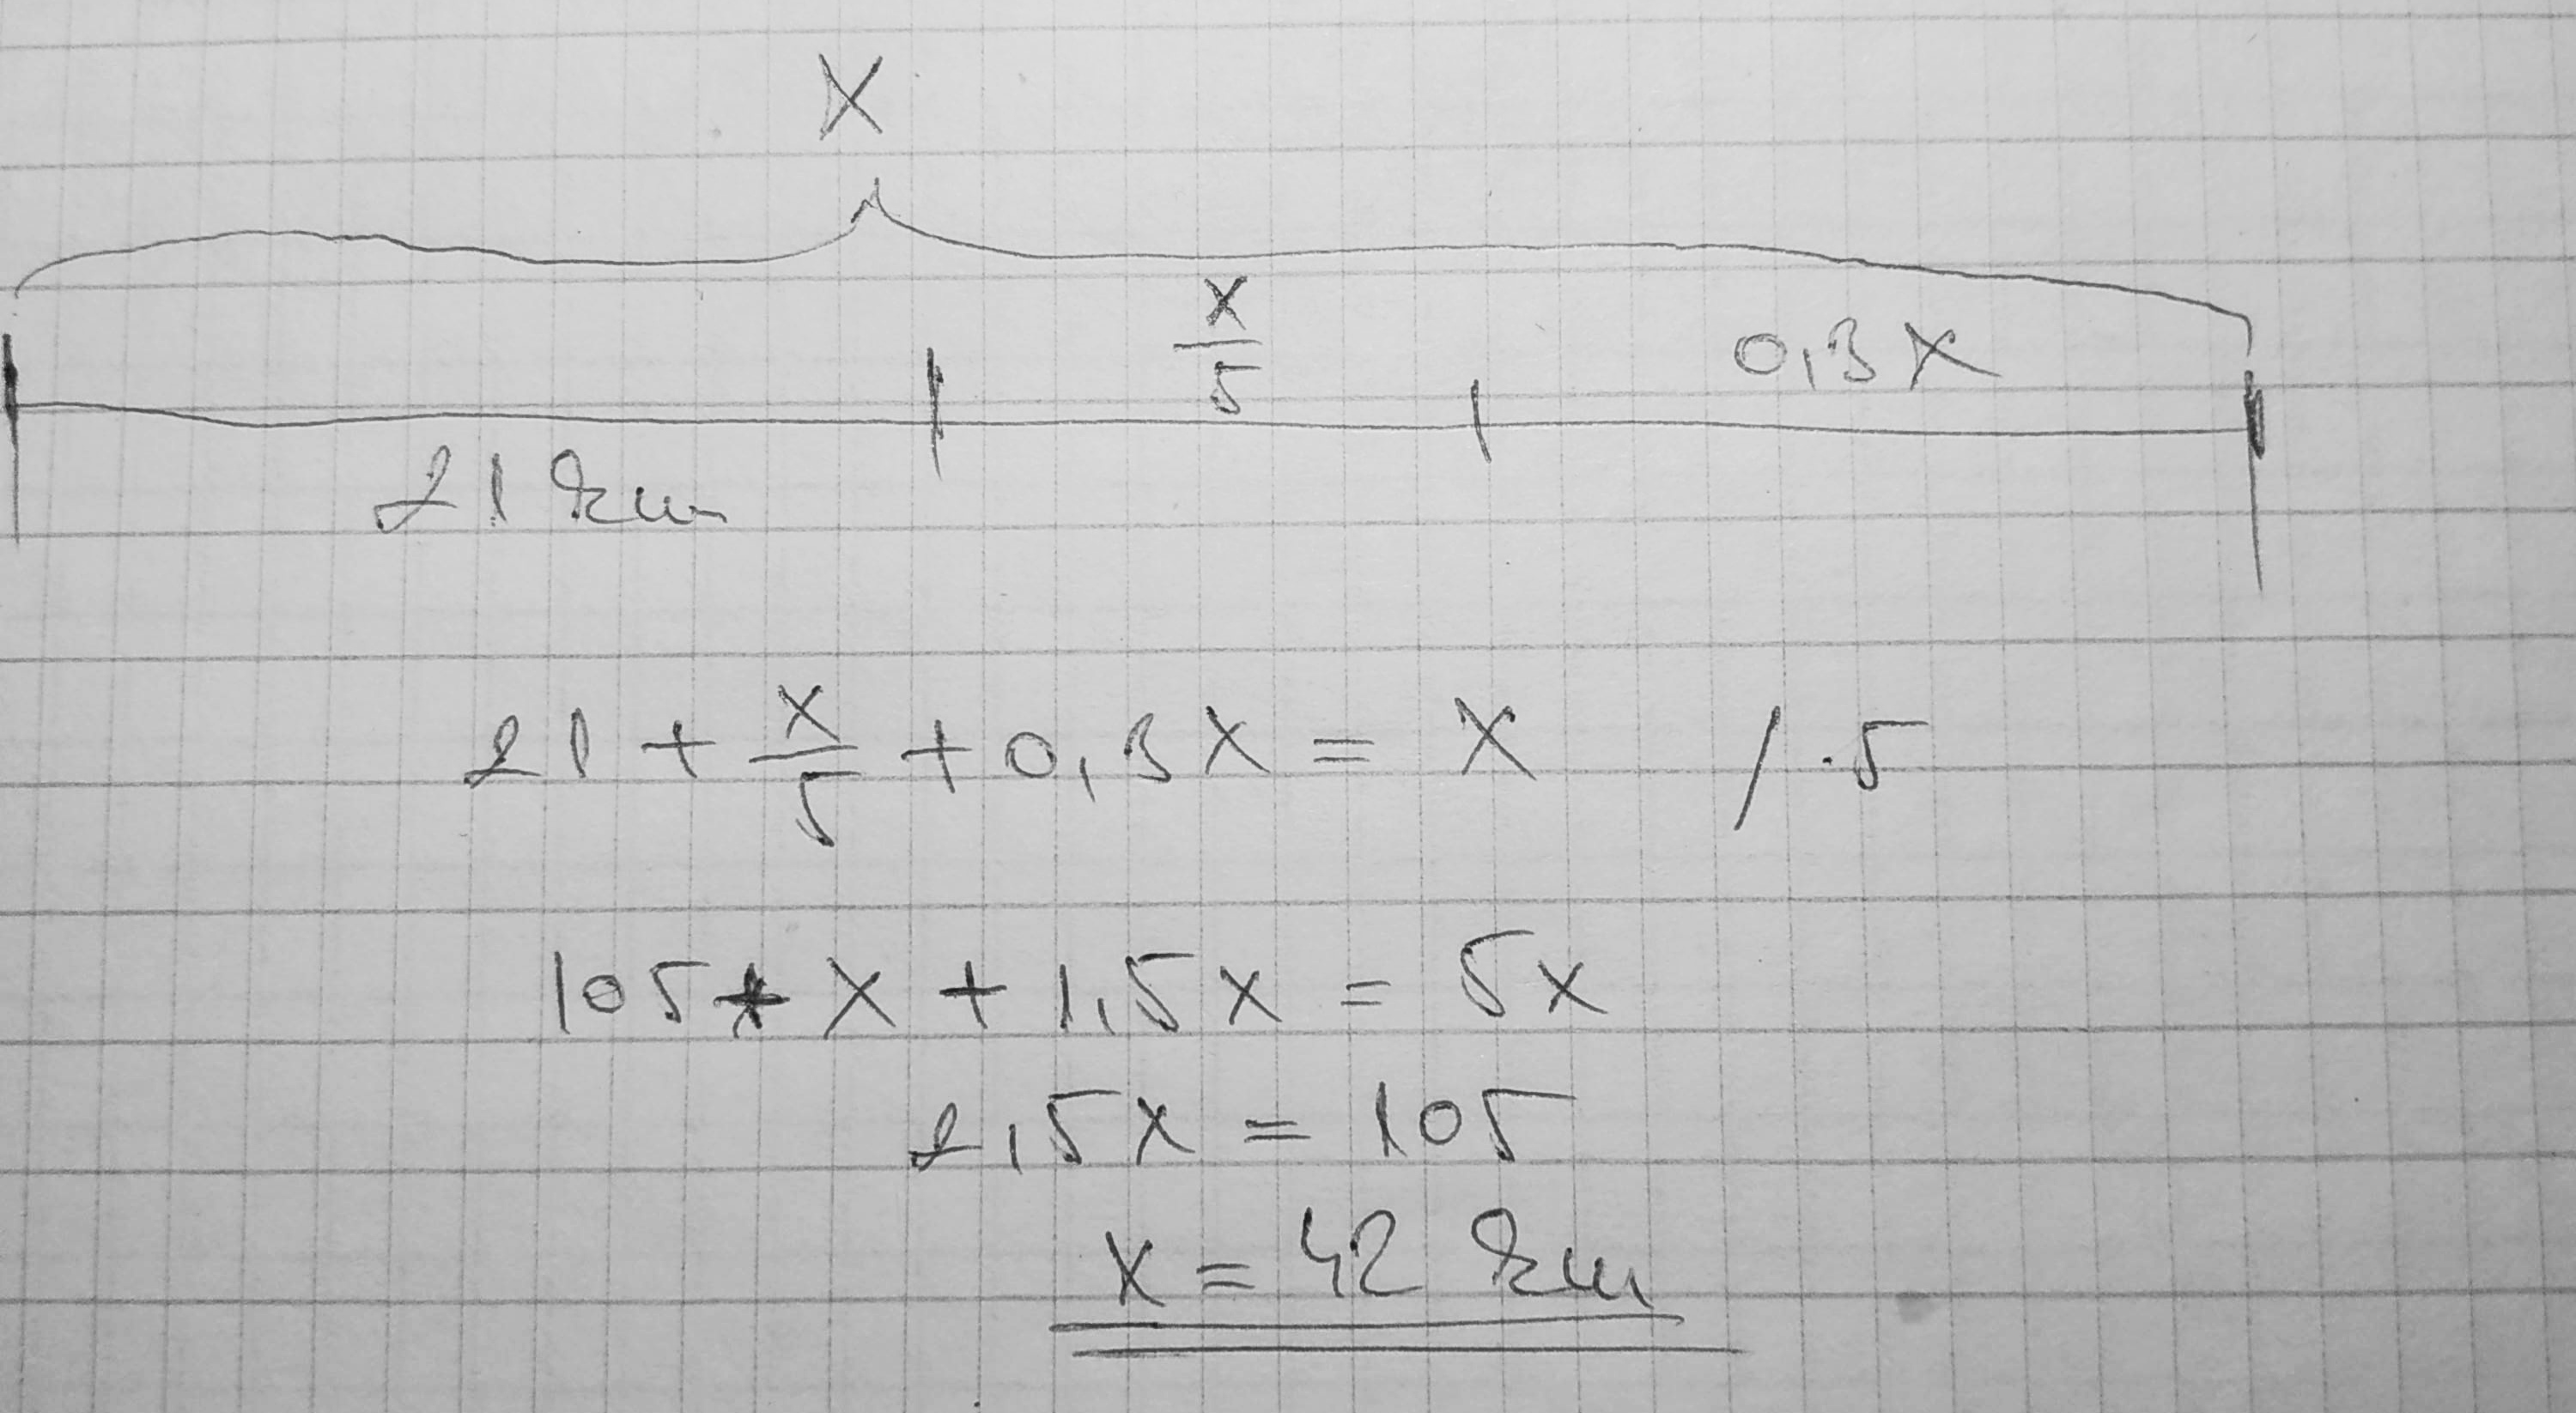 X
x/5
0,3X
21 km
21 + x/5 + 0,3x = x / ·5
105 + x + 1,5x = 5x
2,5x = 105
x = 42 km